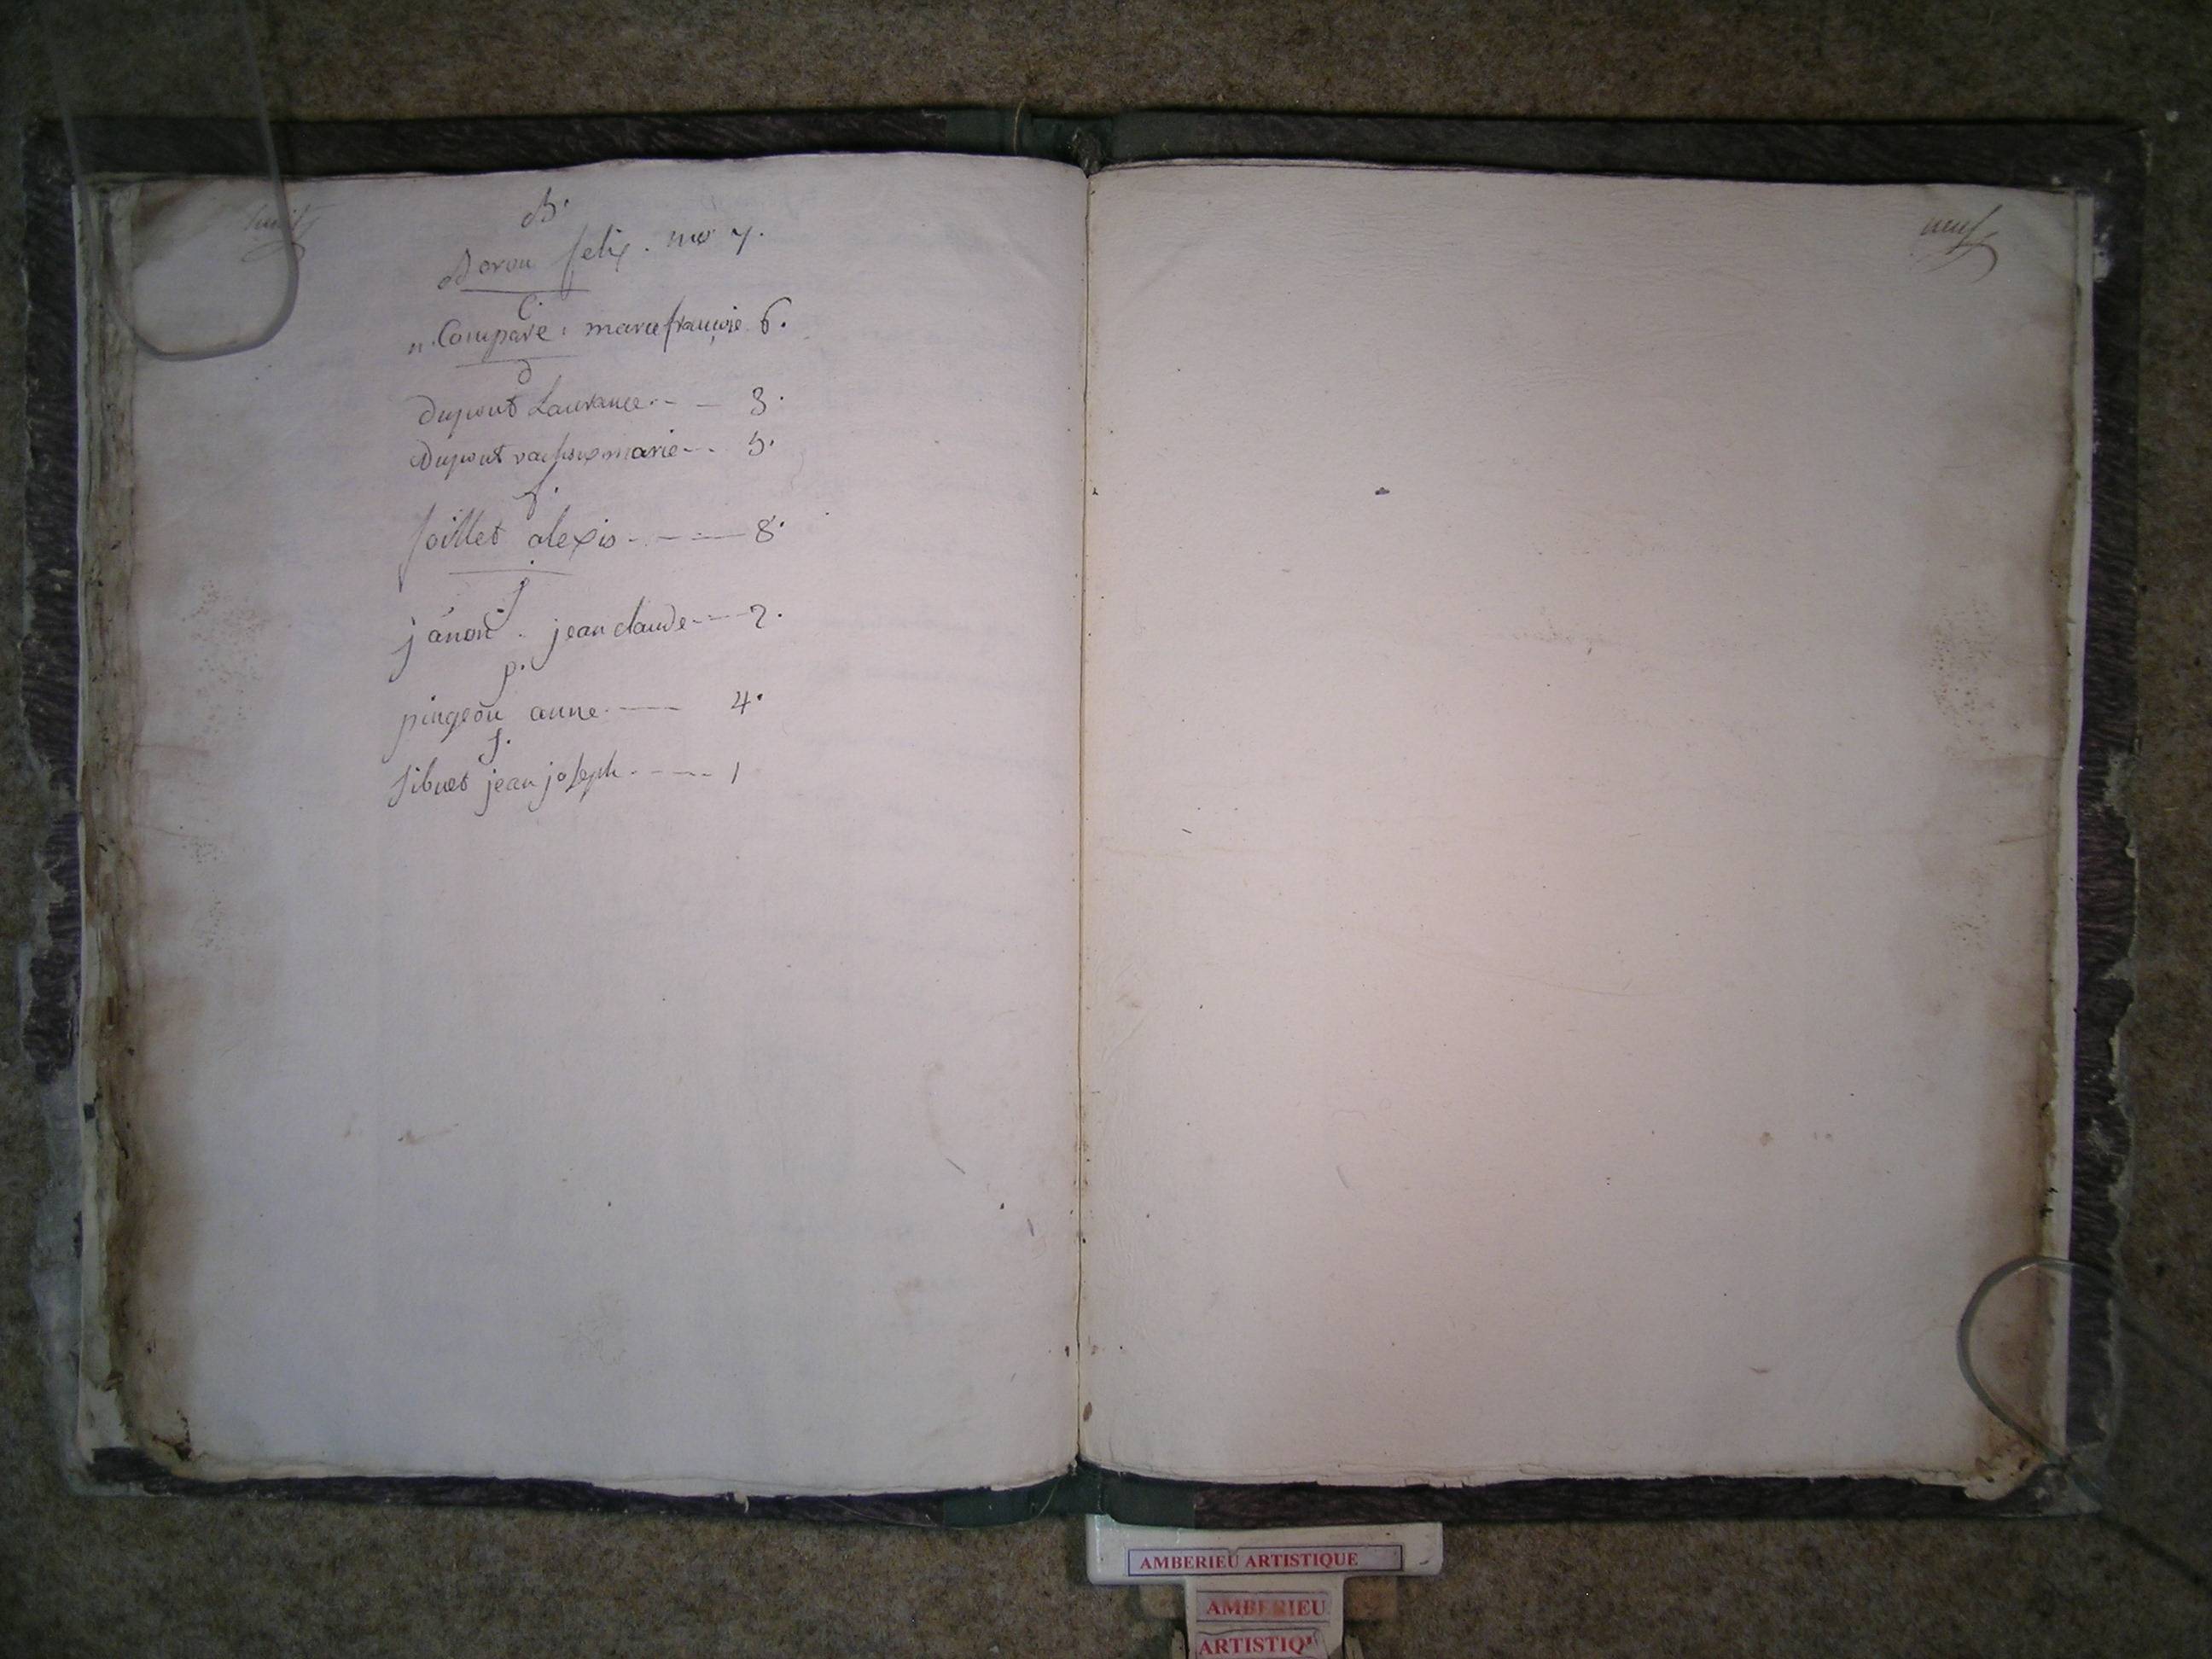 huit
B.
Boron felix. no 7.
C.
n. Compare. marie françoise 6.
D
Dupont Laurance - - 3.
Dupont marie - - 5.
f.
foillet alexis - - - 8.
j
janon. jean claude - - 2.
p.
pingeon anne - - 4.
S.
Sibuet jean joseph - - - 1
neuf
AMBERIEU ARTISTIQUE
AMBERIEU
ARTISTIQU